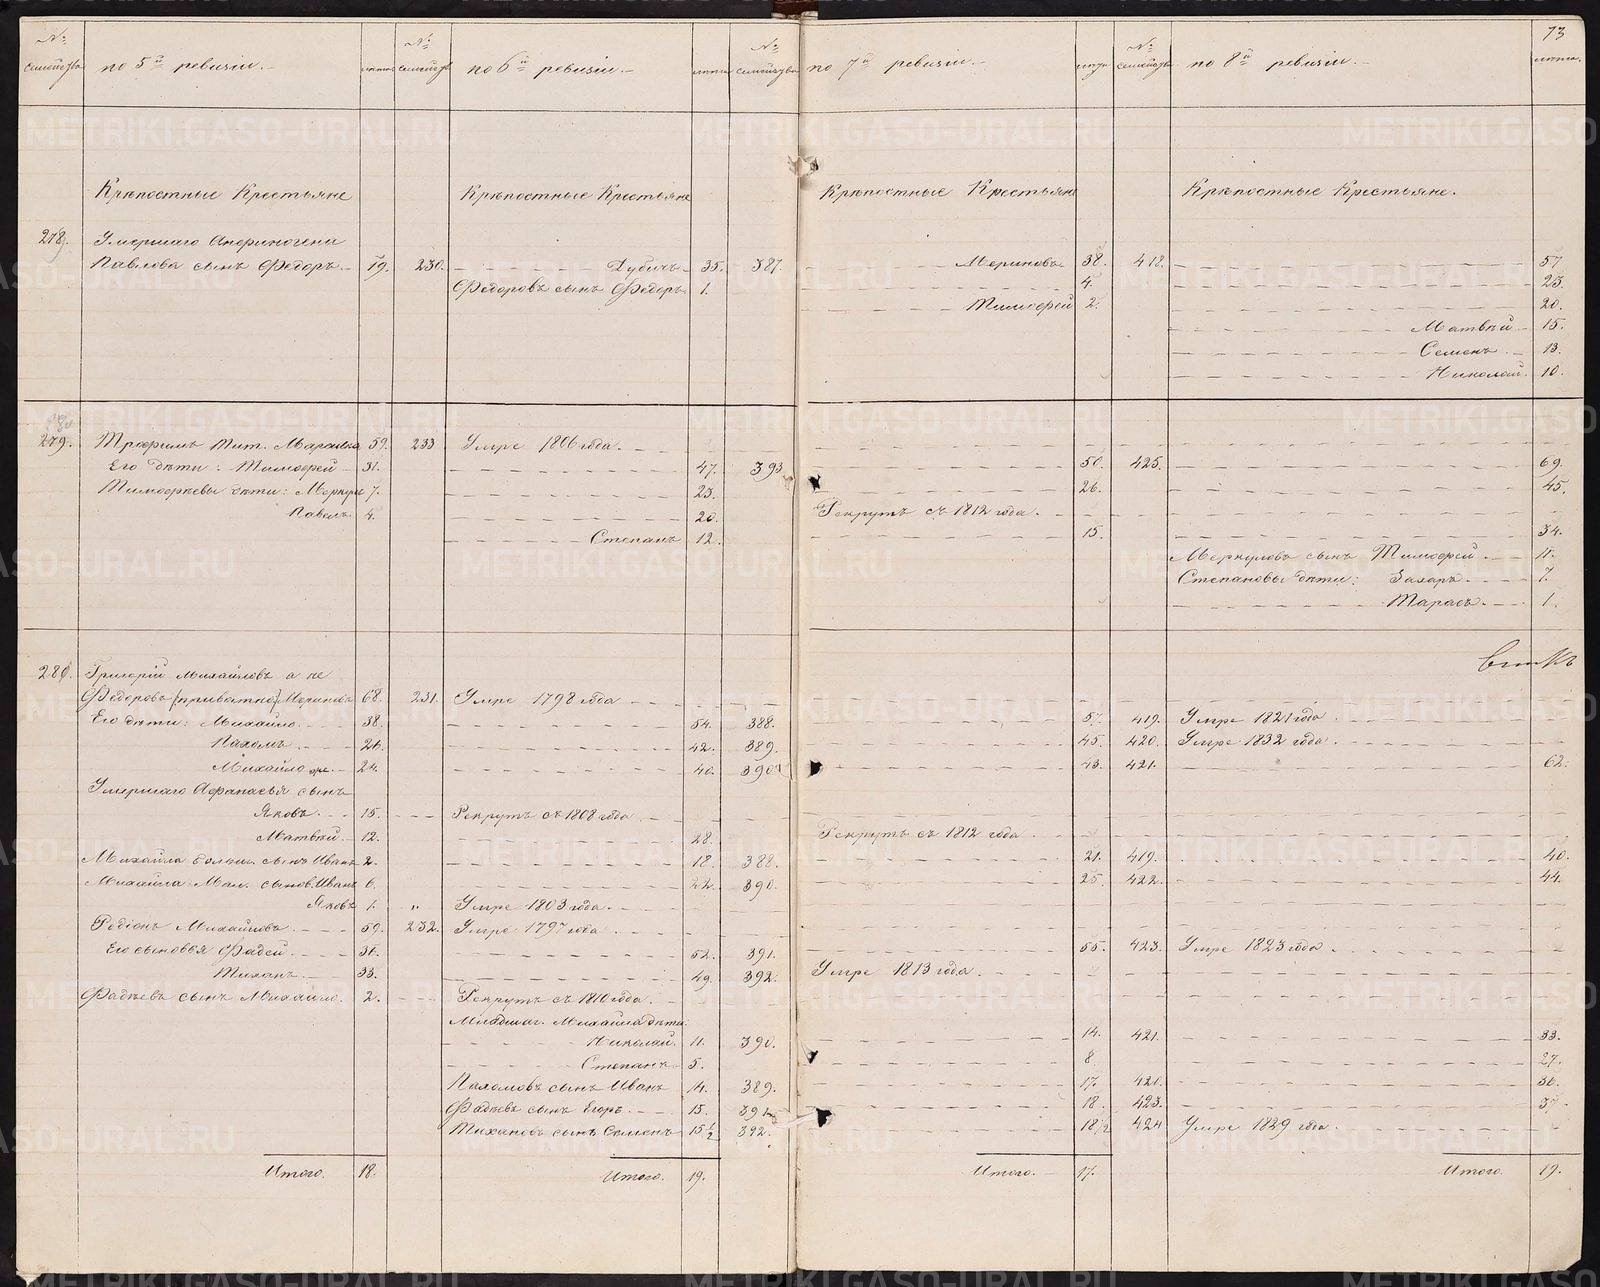 73
№ семейства
по 5й ревизіи.
лѣта
№ семейства
по 6й ревизіи.
лѣта
№ семейства
по 7й ревизіи.
лѣта
№ семейства
по 8й ревизіи.
лѣта.
Крѣпостные Крестьяне
Крѣпостные Крестьяне
Крѣпостные Крестьяне
Крѣпостные Крестьяне.
278. Умершаго Анфиногена
Павлова сынъ Ѳедоръ 19. 230. 35. 387. Мериновъ 38. 418. 57
Ѳедоровъ сынъ Ѳедоръ 1. 4. 23.
Тимофей 2. 20.
Матвѣй 15.
Семенъ 13.
Николай 10.
279. Трофимъ Тит. 59. 233 Умре 1806 года.
Его дѣти: Тимофей 31. 47. 393 50. 425. 69.
Тимофеевы дѣти: Меркуръ 7. 23. 26. 45.
Павелъ 4. 20. Рекрутъ съ 1812 года.
Степанъ 12. 15. 34.
Меркуловъ сынъ Тимофей 11.
Степановы дѣти: Захаръ 7.
Тарасъ 1.
280. Григорій Михайловъ а не
Ѳедоровъ (приватно) Мариновъ 68. 231. Умре 1798 года
Его дѣти: Михайло 38. 54. 388. 57. 419. Умре 1821 года
Пахомъ 26. 42. 389. 45. 420. Умре 1832 года.
Михайло же 24. 40. 390 43. 421. 62.
Умершаго Афанасья сынъ
Яковъ 15. Рекрутъ съ 1808 года
Матвѣй 12. 28. Рекрутъ съ 1812 года
Михайла больш. сынъ Иванъ 2. 18. 388. 21. 419. 40.
Михайла Мал. сынов. Иванъ 6. 22. 390. 25. 422. 44.
Яковъ 1. " Умре 1803 года.
Родіонъ Михайловъ 59. 232. Умре 1797 года
Его сыновья Фадей 36. 52. 391. 55. 423. Умре 1823 года
Тиханъ 33. 49 392. Умре 1813 года
Фадѣевъ сынъ Михайло. 2. Рекрутъ съ 1810 года.
Младшаг. Михайла дѣти:
Николай. 11. 390. 14. 421. 33.
Степанъ 5. 8. 27.
Пахомовъ сынъ Иванъ 14. 389. 17. 420. 36.
Фадѣевъ сынъ Егоръ 15. 391 18. 423. 37
Тихановъ сынъ Семенъ 15½ 392. 18½ 424 Умре 1829 года.
Итого. 18. Итого. 19. Итого. 17. Итого. 19.
METRIKI.GASO-URAL.RU